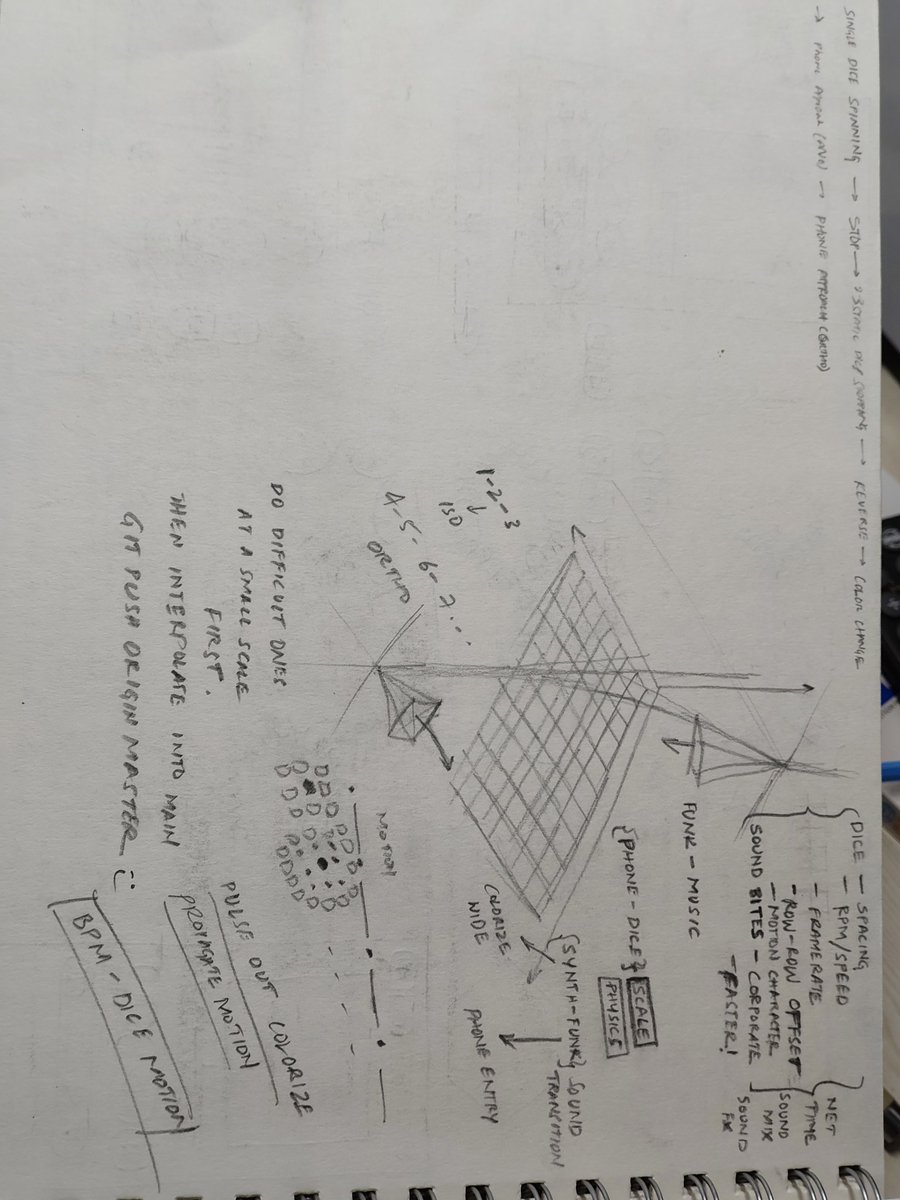 SINGLE DICE SPINNING → STOP → STATIC → REVERSE → COLOR CHANGE
→ PHONE → PHONE APPROACH (ORTHO)
DICE — SPACING
— RPM/SPEED
— FRAMERATE
— ROW-ROW OFFSET
— MOTION CHARACTER
SOUND BITES — CORPORATE
— FASTER!
NET
TIME
SOUND
MIX
SOUND
FX
FUNK - MUSIC
{PHONE - DICE}
SCALE
PHYSICS
{SYNTH-FUNK} SOUND
TRANSITION
COLORIZE
WIDE
PHONE ENTRY
1-2-3
↓
ISO
4-5-6-7...
ORTHO
MOTION
DO DIFFICULT ONES
AT A SMALL SCALE
FIRST.
THEN INTERPOLATE INTO MAIN
GIT PUSH ORIGIN MASTER :)
PULSE OUT COLORIZE
PROPAGATE MOTION
BPM - DICE MOTION